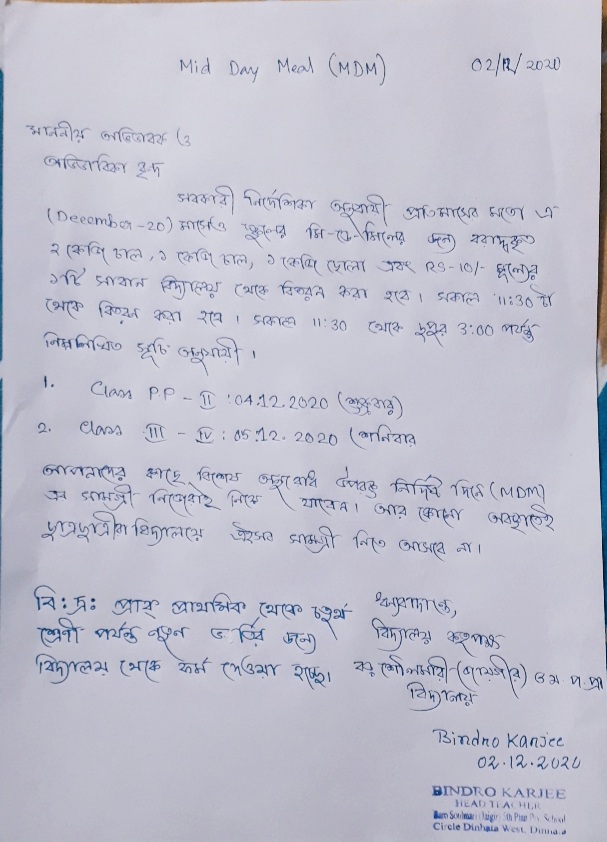 Mid Day Meal (MDM) 02/12/2020
মাননীয় অভিভাবক ও
অভিভাবিকা বৃন্দ
সরকারী নির্দেশিকা অনুযায়ী প্রতিমাসের মতো এ
(December-20) মাসেও স্কুলের মি-ডে-মিলের জন্য বরাদ্দকৃত
২ কেজি চাল, ১ কেজি ডাল, ১ কেজি ছোলা এবং RS-10/- মূল্যের
১টি সাবান বিদ্যালয় থেকে বিতরন করা হবে। সকাল 11:30 টা
থেকে বিতরন করা হবে। সকাল 11:30 থেকে দুপুর 3:00 পর্যন্ত
নিম্নলিখিত সূচি অনুযায়ী।
1. Class PP - II : 04.12.2020 (শুক্রবার)
2. Class III - IV : 05.12.2020 (শনিবার
আপনাদের কাছে বিশেষ অনুরোধ উপরক্ত নির্দিষ্ট দিনে (MDM)
এর সামগ্রী নিজেরাই নিয়ে যাবেন। আর কোনো অবস্থাতেই
ছাত্রছাত্রীরা বিদ্যালয়ে এইসব সামগ্রী নিতে আসবে না।
বি:দ্র: প্রাক্ প্রাথমিক থেকে চতুর্থ
শ্রেণী পর্যন্ত নতুন ভর্তির জন্য
বিদ্যালয় থেকে ফর্ম দেওয়া হচ্ছে।
ধন্যবাদান্তে,
বিদ্যালয় কতৃপক্ষ
বড় শৌলমারী ৪র্থ প. প্রা
বিদ্যালয়
Bindro Karjee
02.12.2020
BINDRO KARJEE
HEAD TEACHER
Circle Dinhata West, Dinhata